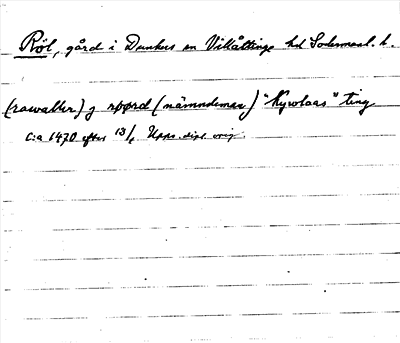 Röl, gård i Dunkers sn Villåttinge hd Södermanl. l.
(rawaller) j røørd (nämndeman) "Kyrolaas" ting
c:a 1470 efter 13/1 Upps. dipl. orig.